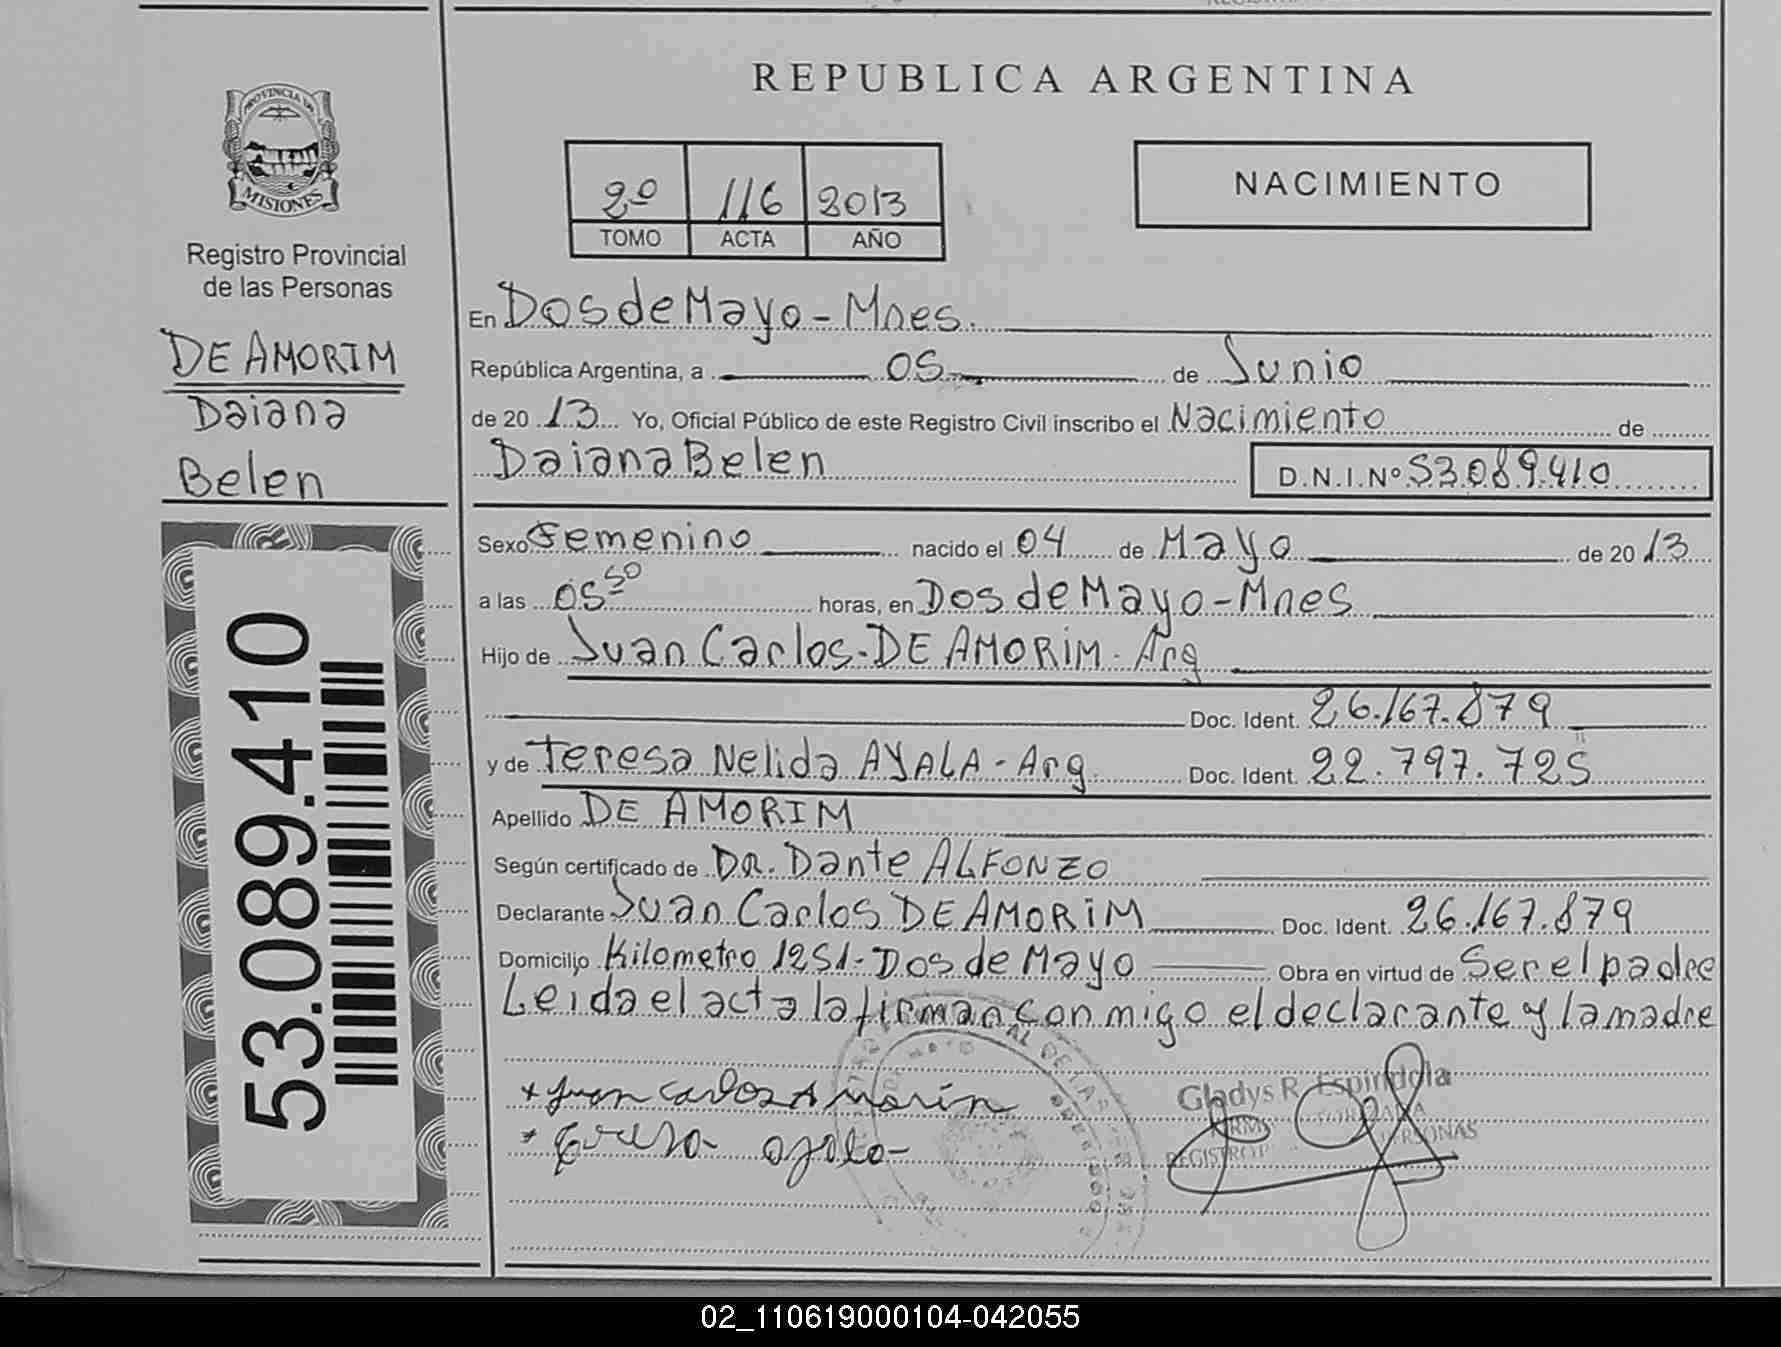 REPUBLICA ARGENTINA
PROVINCIA DE
MISIONES
Registro Provincial
de las Personas
DE AMORIM
Daiana
Belen
53.089.410
2º 116 2013
TOMO ACTA AÑO
NACIMIENTO
En Dos de Mayo - Mnes.
República Argentina, a 05 de Junio
de 2013 Yo, Oficial Público de este Registro Civil inscribo el Nacimiento de
Daiana Belen D.N.I. Nº 53.089.410
Sexo Femenino nacido el 04 de Mayo de 2013
a las 05 50 horas, en Dos de Mayo - Mnes
Hijo de Juan Carlos - DE AMORIM - Arg
Doc. Ident. 26.167.879
y de Teresa Nelida AYALA - Arg. Doc. Ident. 22.797.725
Apellido DE AMORIM
Según certificado de DR. Dante ALFONZO
Declarante Juan Carlos DE AMORIM Doc. Ident. 26.167.879
Domicilio Kilometro 1251 - Dos de Mayo Obra en virtud de Ser el padre
Leida el acta la firman con migo el declarante y la madre
Juan Carlos Amorin
Teresa ayala
Gladys R. Espindola
02_110619000104-042055